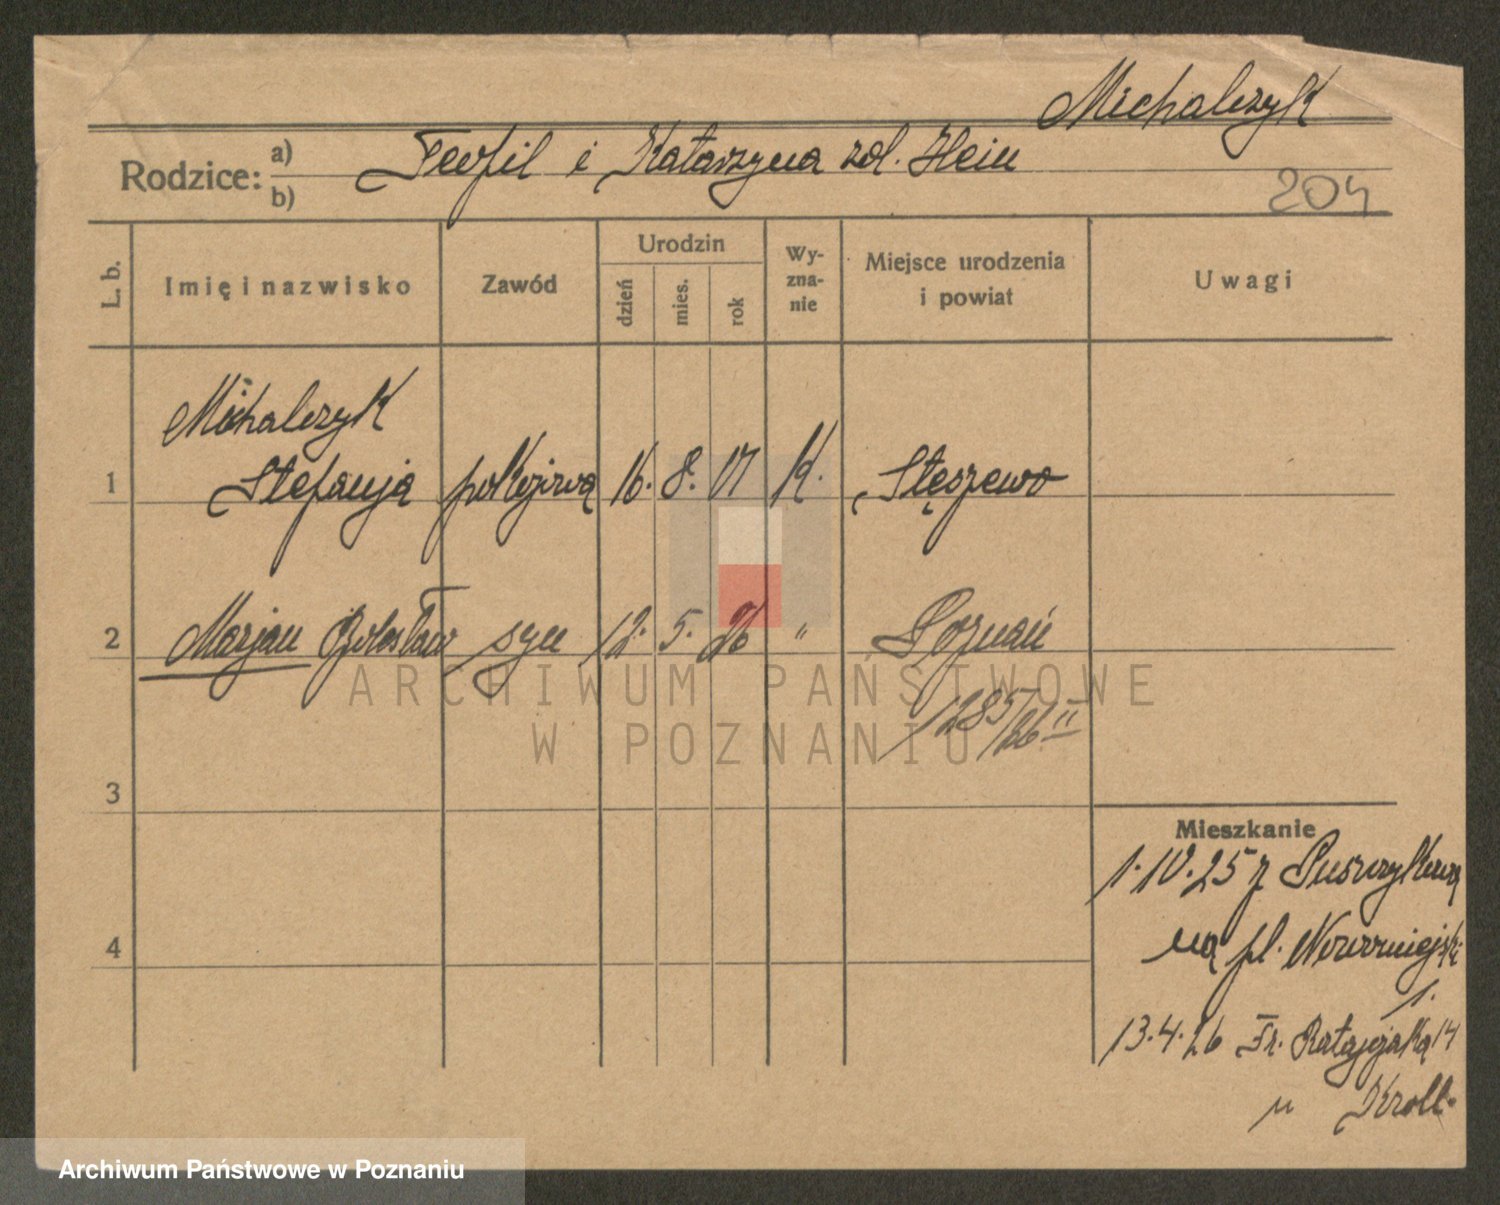 Michalczyk
Rodzice: a) b)
Teofil i Katarzyna zd. Hein
204
L. b.
Imię i nazwisko
Zawód
Urodzin
dzień
mies.
rok
Wy-
zna-
nie
Miejsce urodzenia
i powiat
Uwagi
Michalczyk
1 Stefanja pokojowa 16. 8. 01 K. Stęszewo
2 Marjan Bolesław syn 12. 5. 26 " Poznań
1285/26 II
3
4
Mieszkanie
1.10.25 z Puszczykowa
na pl. Nowomiejski
1.
13.4.26 Fr. Ratajczaka 14
u Kroll.
ARCHIWUM PAŃSTWOWE
W POZNANIU
Archiwum Państwowe w Poznaniu